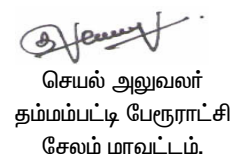 செயல் அலுவலர்
தம்மம்பட்டி பேரூராட்சி
சேலம் மாவட்டம்.